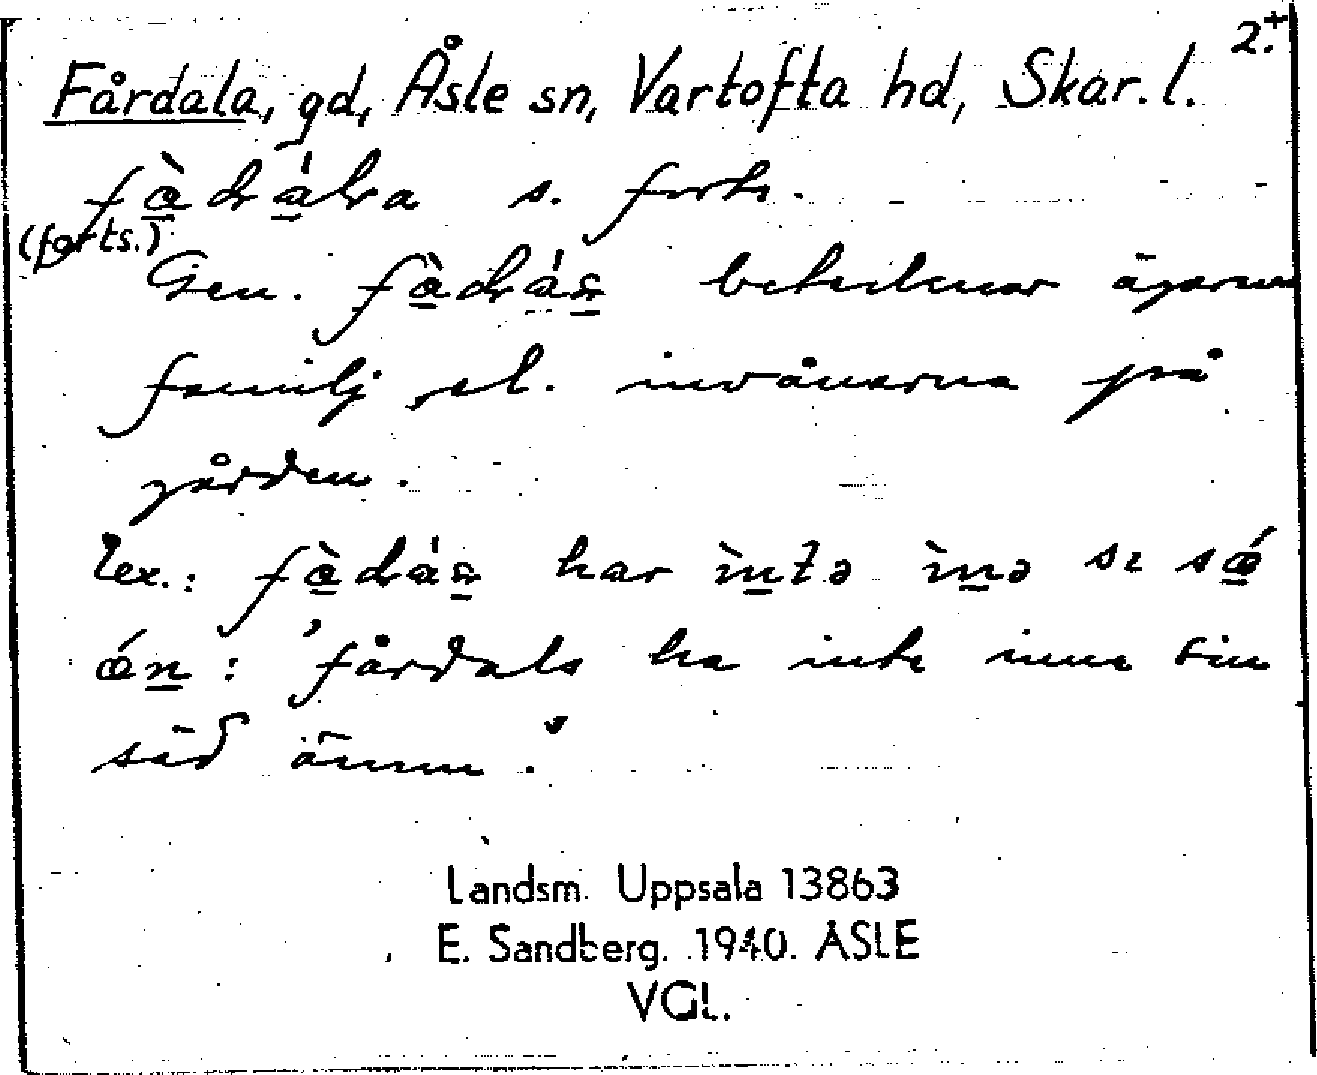 2.+
Fårdala, gd, Åsle sn, Vartofta hd, Skar. l.
s. forts.
(forts.)
Gen. betecknar ägarens
familj el. invånarna på
gården.
Ex.: har ìntə ìnə se sǽ
ǽn: 'fårdals ha inte inne sin
säd ännu.'
Landsm. Uppsala 13863
E. Sandberg. 1940. ÅSLE
VGL.